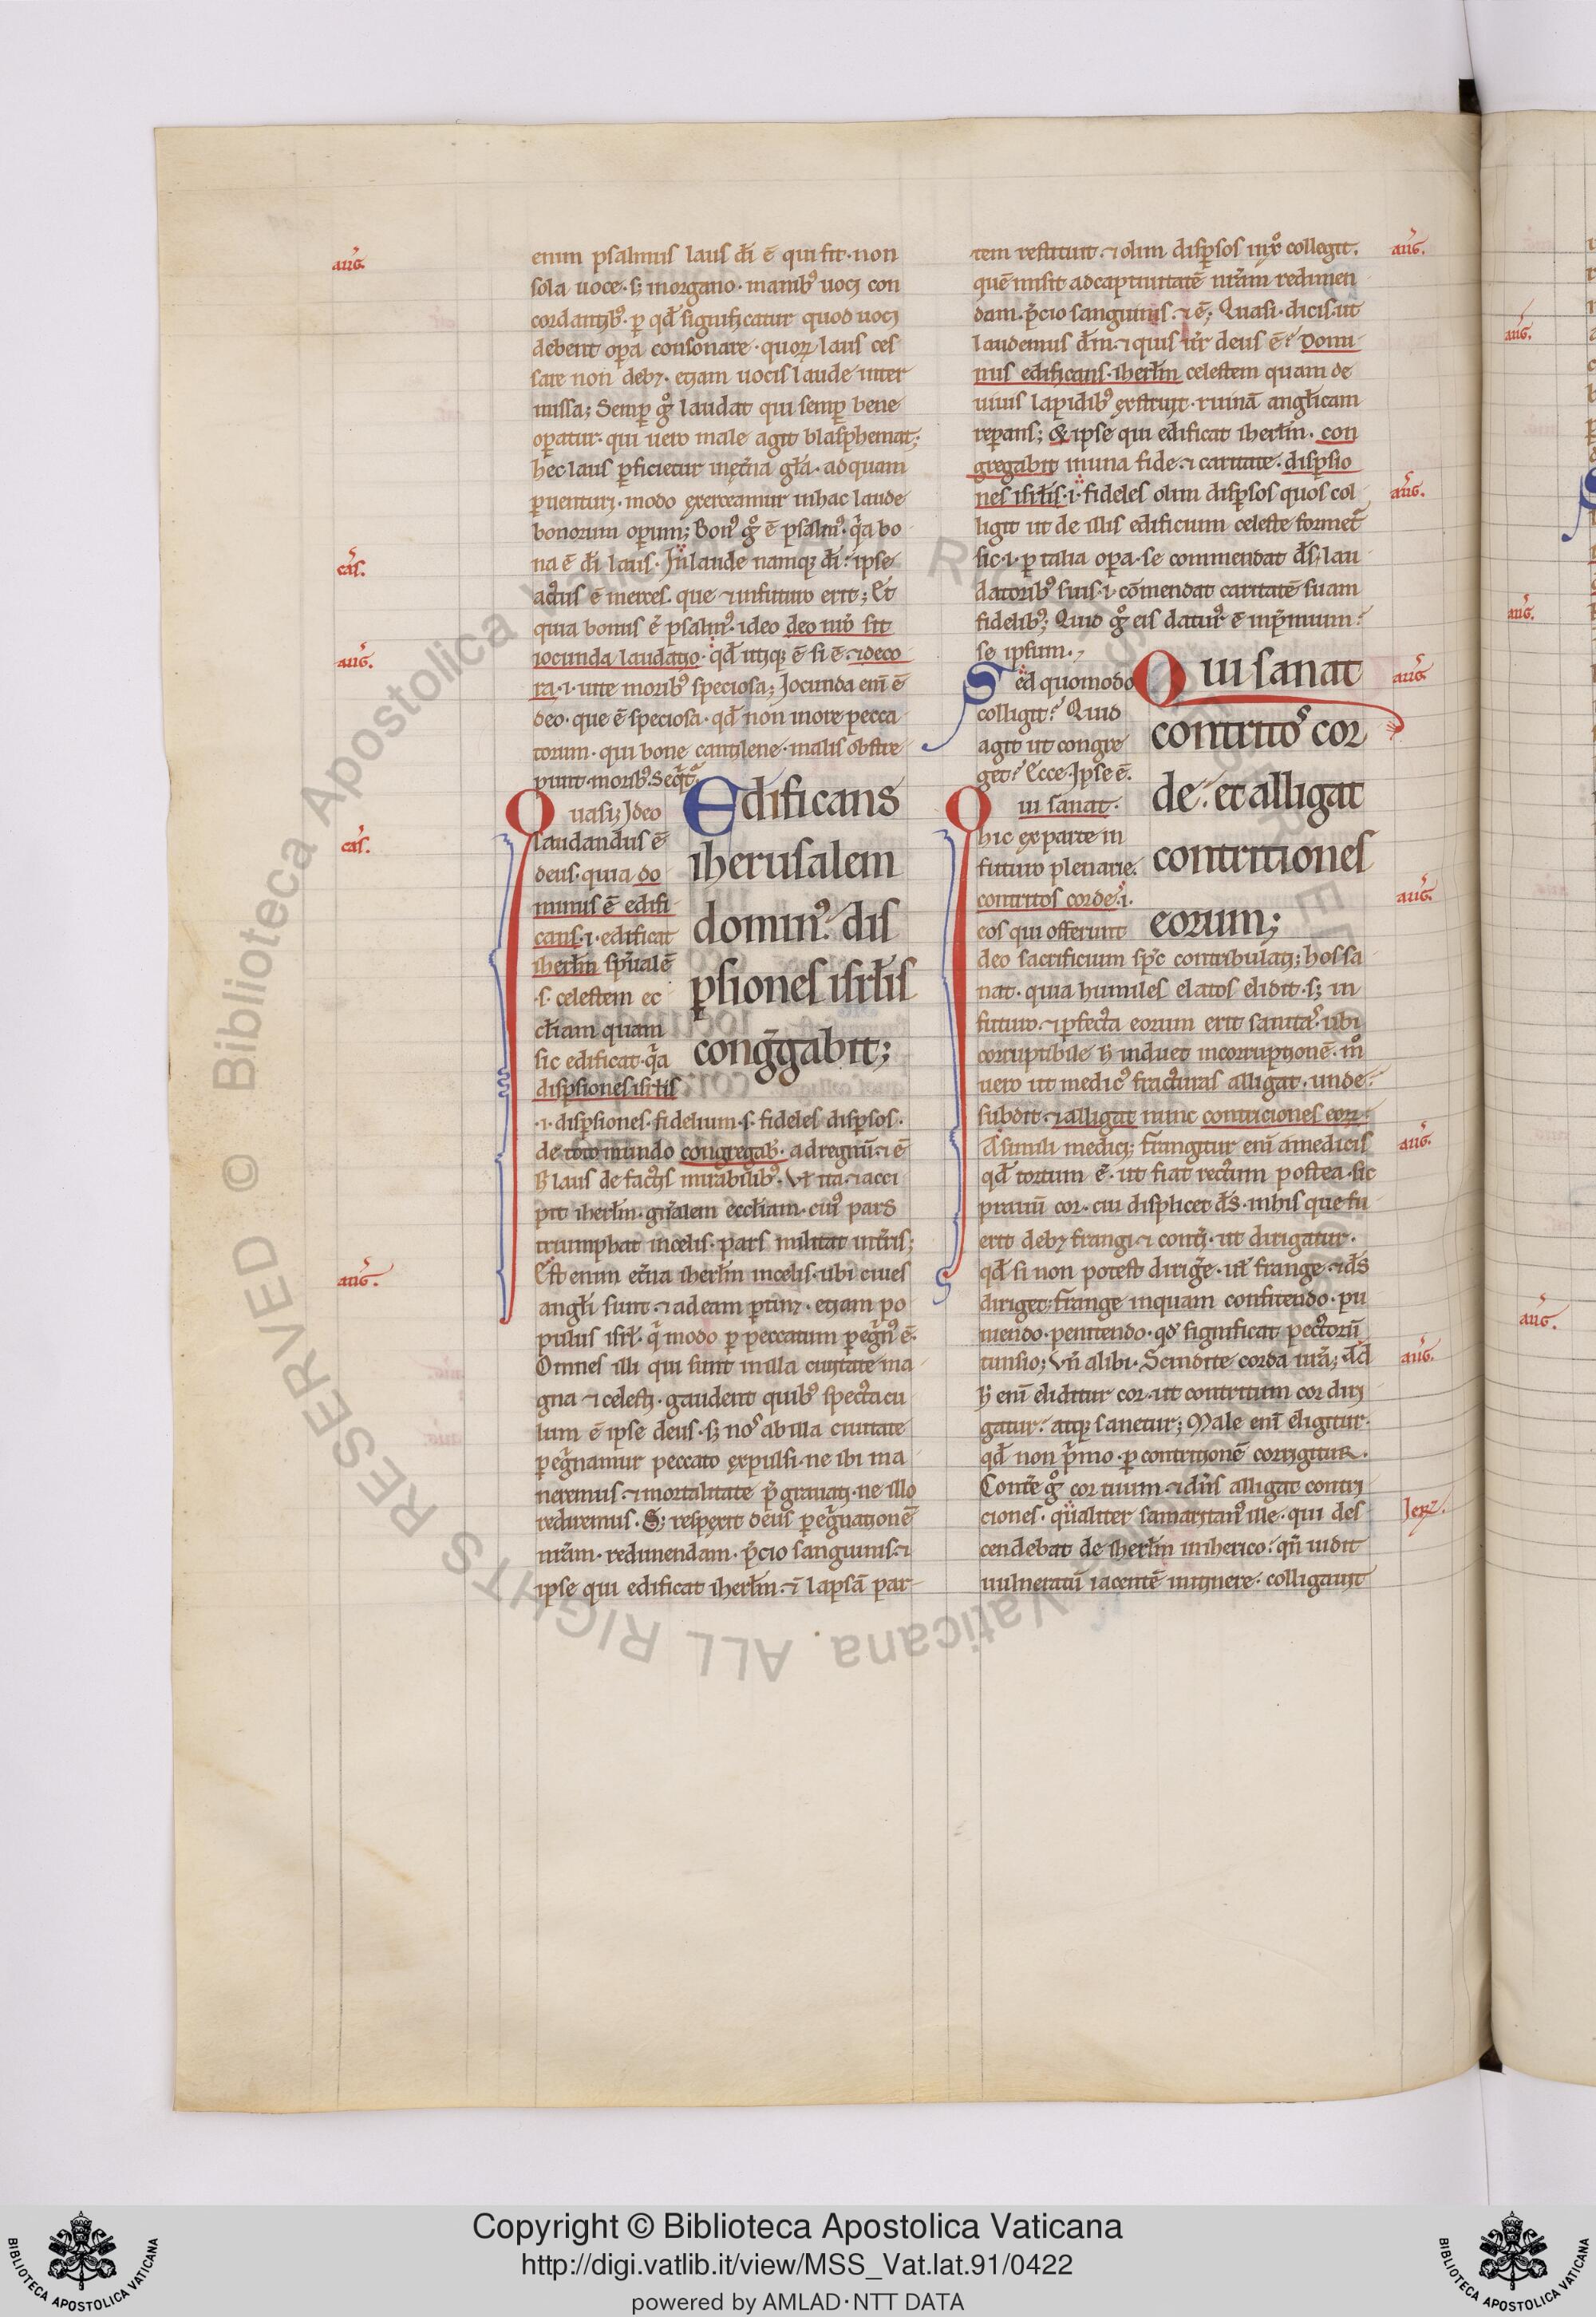 enim psalmus laus dī ē qui fit· non
sola uoce· sꝫ in organo· manibꝰ uoci con
cordantibꝰ· ꝑ qd̄ significatur quod uoci
debent oꝑa consonare· quoꝝ laus ces
sare non debꝫ· etiam uocis laude inter
missa; Semꝑ gͦ laudat qui semꝑ bene
oꝑatur· qui uero male agit blasphemat;
hec laus ꝑficietur in et̄na gl̄a· ad quam
ꝑuenturi· modo exerceamur in hac laude
bonorum oꝑum; Bonꝰ gͦ ē psalmꝰ· qͣa bo
na ē dī laus· In laude namqꝫ dī· ipse
actus ē merces· que ⁊ in futuro erit; Et
quia bonus ē psalmꝰ· ideo deo nr̄o sit
iocunda laudatio· qd̄ utiqꝫ ē si ē· ⁊ deco
ra· i· uite moribꝰ speciosa; Iocunda eni ē
deo· que ē speciosa· qd̄ non more pecca
torum· qui bone cantilene· malis obstre
punt moribꝰ· Seqͥtͬ
Quasi; Ideo
laudandus ē
deus· quia do
minus ē edifi
cans· i· edificat
iherl̄m sp̄ualē
·s· celestem ec
cl̄iam quam
sic edificat· qͣa
disꝑsiones isrl̄is
·i· disꝑsiones· fidelium· s· fideles disꝑsos·
de toto mundo congregab̄· ad regnū· ⁊ ē
h̄ laus de factis mirabilibꝰ· Vl̄ ita· ⁊ acci
pit iherl̄m· gn̄alem eccl̄iam· cuiꝰ pars
triumphat in celis· pars militat in tr̄is;
Est enim et̄na iherl̄m in celis· ubi ciues
angl̄i sunt· ⁊ ad eam ꝑtinꝫ· etiam po
pulus isrl̄· qͥ modo ꝑ peccatum ꝑegͥnꝰ ē·
Omnes illi qui sunt in illa ciuitate ma
gna ⁊ celesti· gaudent quibꝰ spectacu
lum ē ipse deus· sꝫ nos ab illa ciuitate
ꝑegͥnamur peccato expulsi· ne ibi ma
neremus· ⁊ mortalitate p̄grauati· ne illo
rediremus· Sꝫ respexit deus ꝑegͥnationē
nr̄am· redimendam· p̄cio sanguinis· ⁊
ipse qui edificat iherl̄m· ⁊ lapsā par
Edificans
iherusalem
dominꝰ· dis
ꝑsiones isrl̄is
congͤgabit;
tem restituit· ⁊ olim disꝑsos in xp̄o collegit·
quē misit ad captiuitatē nr̄am redimen
dam· p̄cio sanguinis· ⁊ ē; Quasi· dicis· ut
laudemus dn̄m· ⁊ quis ur̄ deus ē? Domi
nus edificans· iherl̄m celestem quam de
uiuis lapidibꝰ exstruit· ruinā angl̄icam
reꝑans; & ipse qui edificat iherl̄m· con
gregabit in una fide· ⁊ caritate· disꝑsio
nes isrl̄is· i· fideles olim disꝑsos quos col
ligit ut de illis edificium celeste formet
sic· i· ꝑ talia oꝑa· se commendat dn̄s· lau
datoribꝰ suis· i· cōmendat caritatē suam
fidelibꝰ; Quid gͦ eis daturꝰ ē in p̄mium?
se ipsum·,
Sed quomodo
colligit? Quid
agit ut congre
get? Ecce· Ipse ē·
Qui sanat·
hic ex parte in
futuro plenarie·
contritos corde· i·
eos qui offerunt
deo sacrificium spc̄ contribulati; hos sa
nat· quia humiles elatos elidit· sꝫ in
futuro· ⁊ ꝑfecta eorum erit sanitas· ubi
corruptibile h̄ induet incorruptionē· mͦ
uero ut medicꝰ fracturas alligat· unde·
subdit· ⁊ alligat nunc contriciones eoꝝ·
A simili medici; frangitur eni a medicis
qd̄ tortum ē· ut fiat rectum postea· sic
prauū cor· cui displicet ds̄· in his que fu
erit debꝫ frangi ⁊ conti· ut dirigatur·
qd̄ si non potest dirige· ut frange· ⁊ ds̄
diriget· frange inquam confitendo· pu
niendo· penitendo· qd̄ significat pectorū
tunsio; Vn̄ alibi· Scindite corda ur̄a;
h̄ eni eliditur cor· ut contritum cor diri
gatur· atqꝫ sanetur; Male eni eligitur·
qd̄ non p̄mo· ꝑ contritionē corrigitur·
Conte gͦ cor tuum· ⁊ dn̄s alligat contri
ciones· qualiter samaritanꝰ ille· qui des
cendebat de iherl̄m in iherico· qn̄ uidit
uulneratū iacentē in itinere· colligauit
Qui sanat
contritos cor
de· et alligat
contritiones
eorum;
aug̅.
cas̅.
aug̅.
cas̅.
aug̅.
aug̅.
aug̅.
aug̅.
aug̅.
aug̅.
aug̅.
Ier.
aug̅.
aug̅.
aug̅.
© Biblioteca Apostolica Vaticana. ALL RIGHTS RESERVED
Copyright © Biblioteca Apostolica Vaticana
http://digi.vatlib.it/view/MSS_Vat.lat.91/0422
powered by AMLAD·NTT DATA
BIBLIOTECA APOSTOLICA VATICANA
BIBLIOTECA APOSTOLICA VATICANA